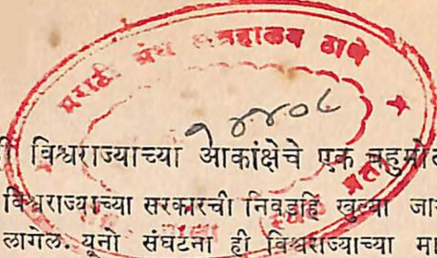 मराठी ग्रंथ संग्रहालय ठाणे
१४४०८
विश्वराज्याच्या आकांक्षेचे एक
विश्वराज्याच्या सरकारची निवडहि खुल्या
लागेल. यूनो संघटना ही विश्वराज्याच्या